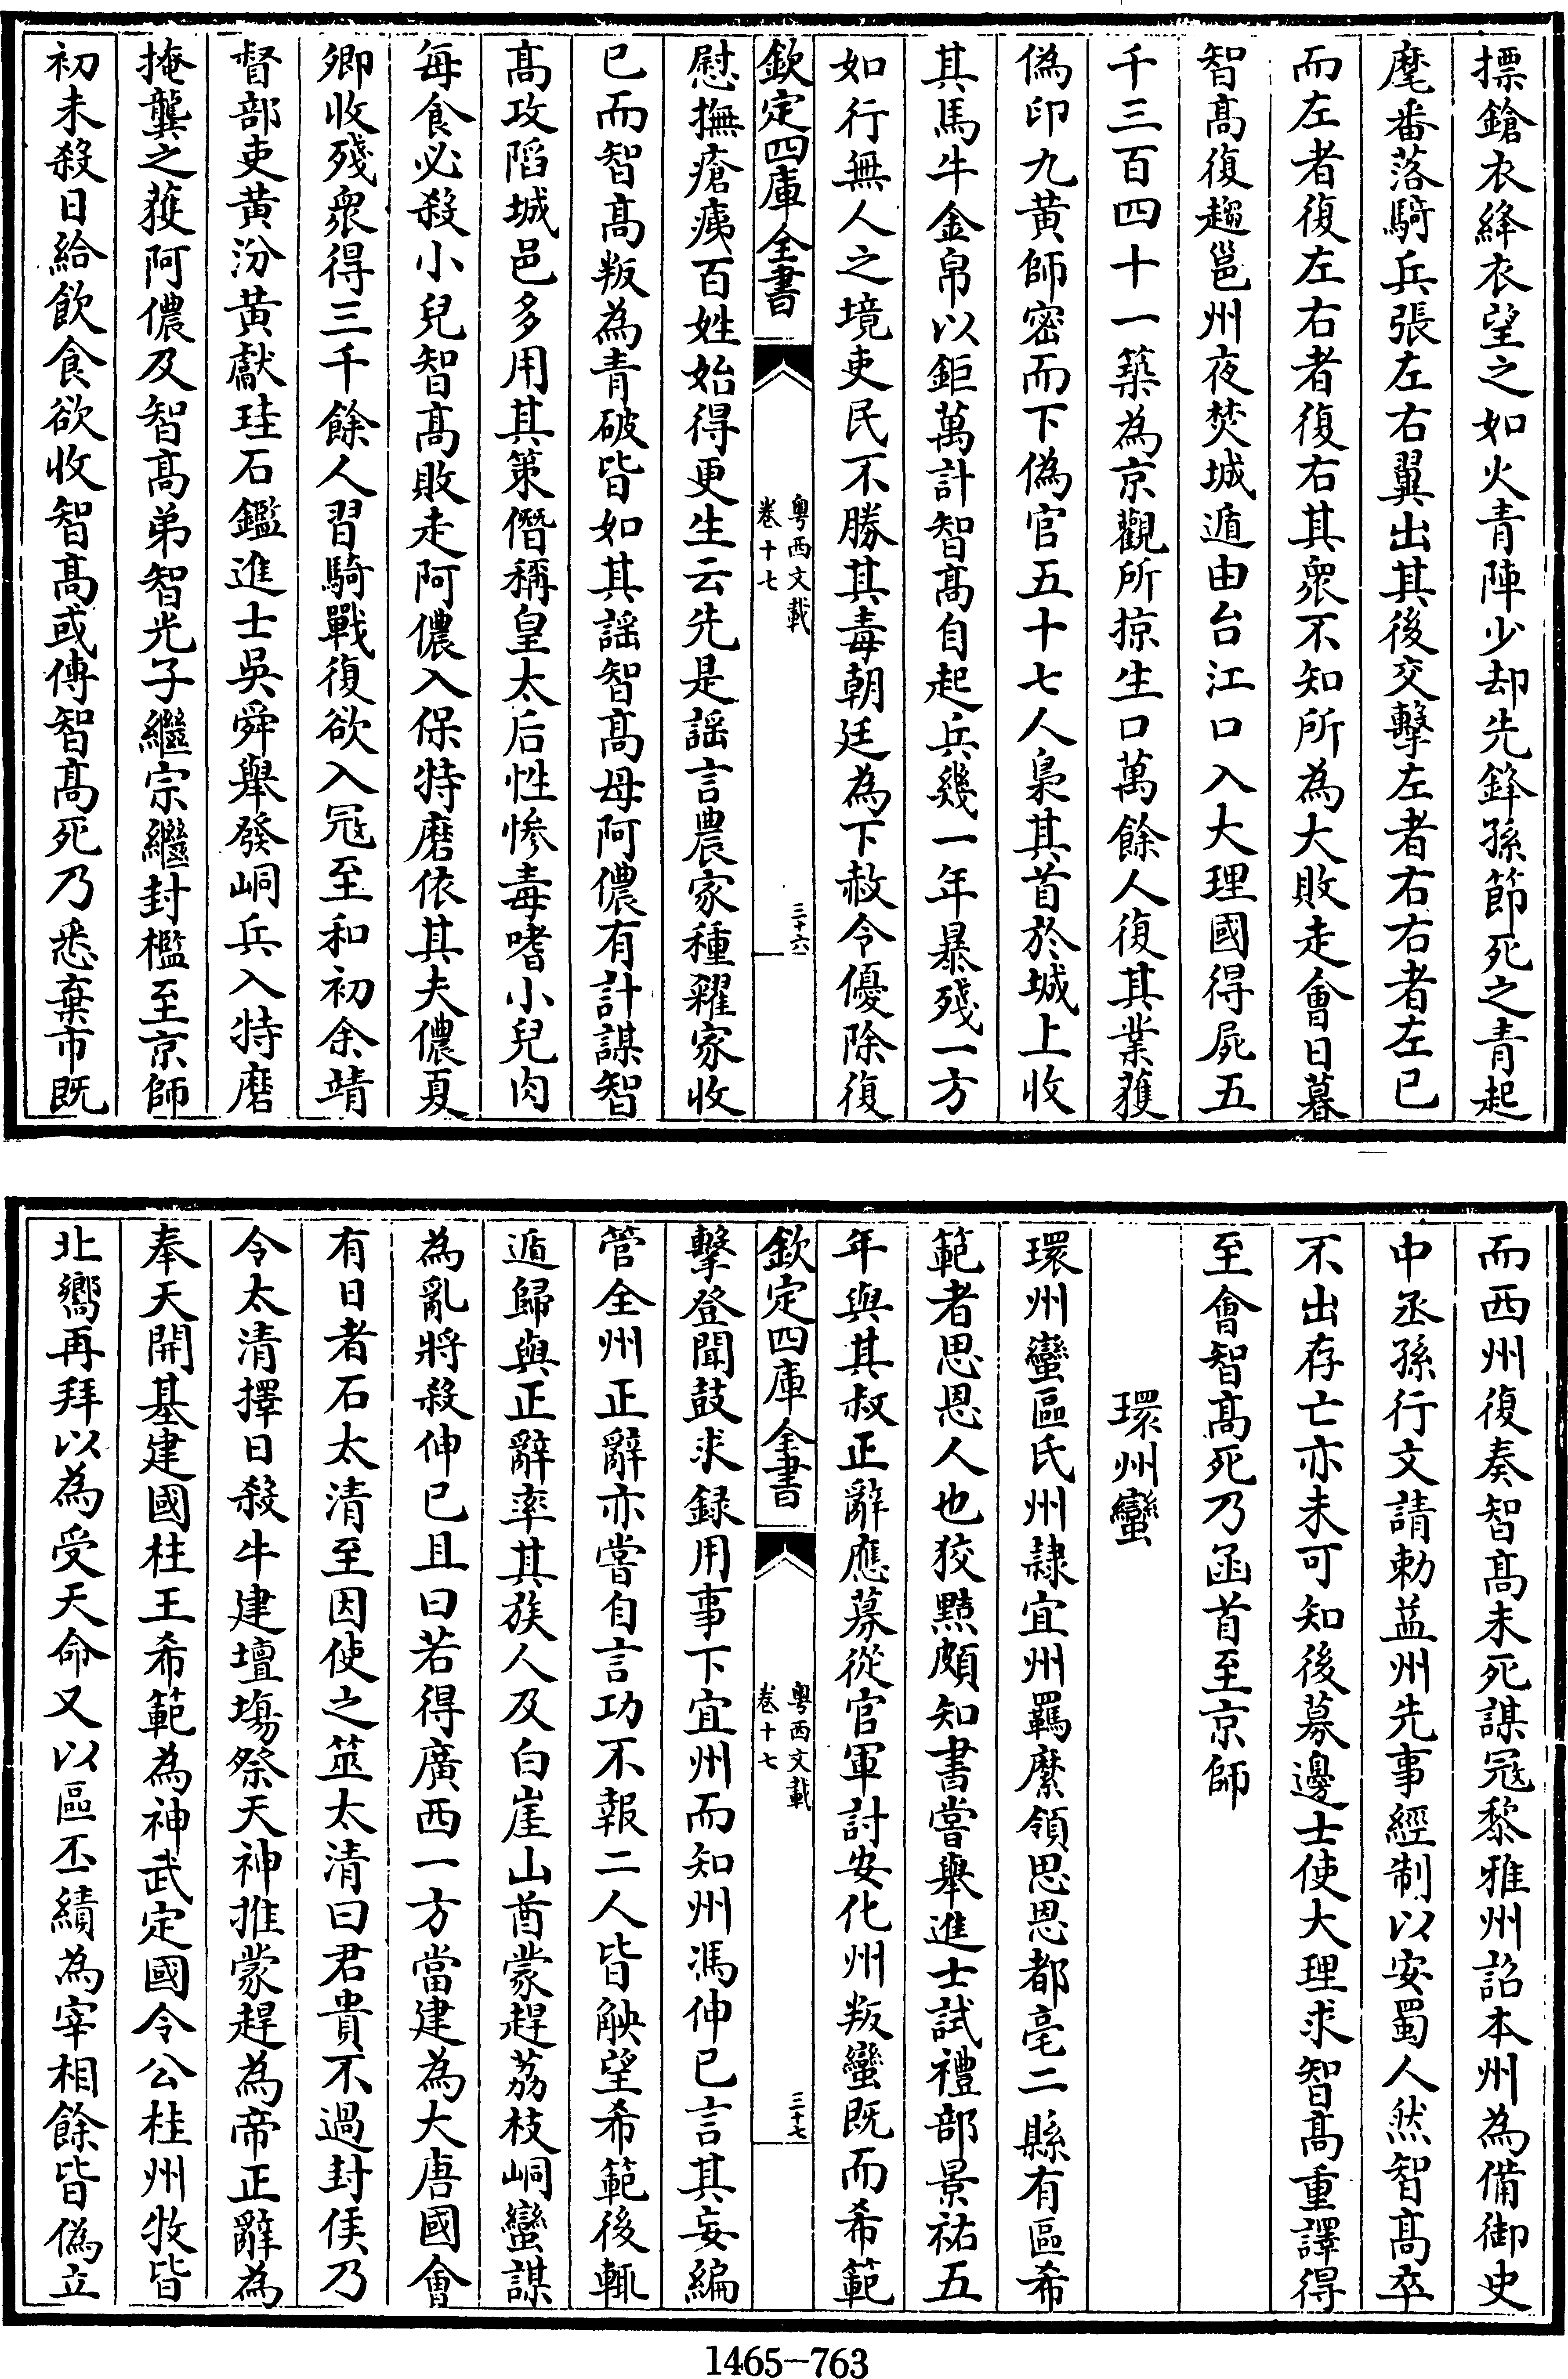 摽鎗衣絳衣望之如火青陣少却先鋒孫節死之青起
麾番落騎兵張左右翼出其後交擊左者右右者左已
而左者復左右者復右其衆不知所為大敗走會日暮
智髙復趨邕州夜焚城遁由台江口入大理國得屍五
千三百四十一築為京觀所掠生口萬餘人復其業獲
偽印九黃師宻而下偽官五十七人梟其首於城上收
其馬牛金帛以鉅萬計智髙自起兵幾一年暴殘一方
如行無人之境吏民不勝其毒朝廷為下赦令優除復
欽定四庫全書
粤西文載
卷十七
三十六
慰撫瘡痍百姓始得更生云先是謡言農家種糴家收
已而智髙叛為青破皆如其謡智髙母阿儂有計謀智
髙攻䧟城邑多用其策僭稱皇太后性慘毒嗜小兒肉
每食必殺小兒智髙敗走阿儂入保特磨依其夫儂夏
卿收殘衆得三千餘人習騎戰復欲入冦至和初余靖
督部吏黃汾黃獻珪石鑑進士吳舜舉發峒兵入特磨
掩襲之獲阿儂及智髙弟智光子繼宗繼封檻至京師
初未殺日給飲食欲收智髙或傳智髙死乃悉棄市既
而西州復奏智髙未死謀冦黎雅州詔本州為備御史
中丞孫行文請勅益州先事經制以安蜀人然智髙卒
不出存亡亦未可知後募邊士使大理求智髙重譯得
至會智髙死乃函首至京師
環州蠻
環州蠻區氏州隷宜州羈縻領思恩都亳二縣有區希
範者思恩人也狡黠頗知書嘗舉進士試禮部景祐五
年與其叔正辭應募從官軍討安化州叛蠻既而希範
欽定四庫全書
粤西文載
卷十七
三十七
擊登聞鼓求録用事下宜州而知州馮伸已言其妄編
管全州正辭亦嘗自言功不報二人皆觖望希範後輒
遁歸與正辭率其族人及白崖山酋蒙趕荔枝峒蠻謀
為亂將殺伸已且曰若得廣西一方當建為大唐國會
有日者石太清至因使之筮太清曰君貴不過封侯乃
令太清擇日殺牛建壇塲祭天神推蒙趕為帝正辭為
奉天開基建國桂王希範為神武定國令公桂州牧皆
北嚮再拜以為受天命又以區丕績為宰相餘皆偽立
1465-763